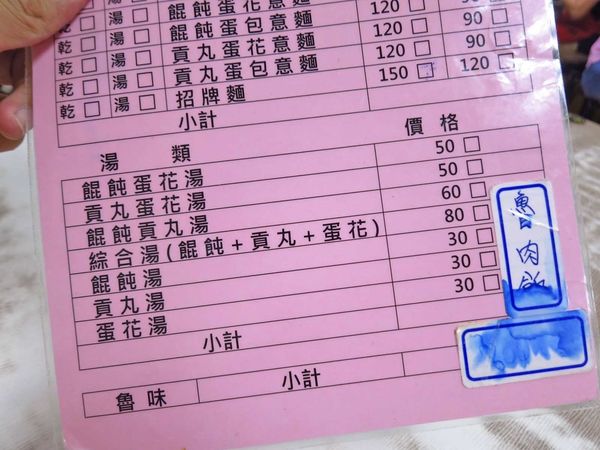 乾 □ 湯 □ 餛飩蛋花意麵 120 □ 90 □
乾 □ 湯 □ 餛飩蛋包意麵 120 □ 90 □
乾 □ 湯 □ 貢丸蛋花意麵 120 □ 90 □
乾 □ 湯 □ 貢丸蛋包意麵 120 □ 90 □
乾 □ 湯 □ 招牌麵 150 □ 120 □
小計
湯類 價格
餛飩蛋花湯 50 □
貢丸蛋花湯 50 □
餛飩貢丸湯 60 □
綜合湯(餛飩+貢丸+蛋花) 80 □
餛飩湯 30 □
貢丸湯 30 □
蛋花湯 30 □
小計
魯味 小計
魯肉飯